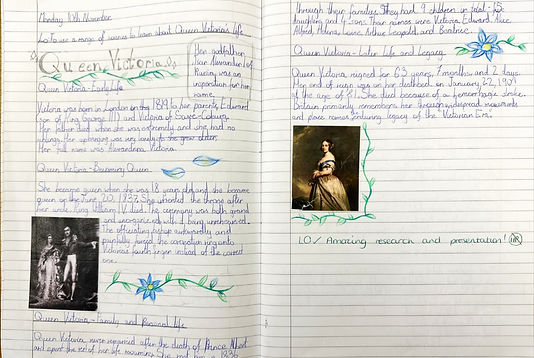 Monday 13th November
L.o To use a range of sources to learn about Queen Victoria's life
Queen Victoria
Her godfather
Tsar Alexander I of
Russia was an
inspiration for her
name.
Queen Victoria - Early Life
Victoria was born in London on the 1819 to her parents, Edward
(son of King George III) and Victoria of Saxe-Coburg.
Her father died when she was extremely and she had
Her full name was Alexandrina Victoria.
Queen Victoria - Becoming Queen
She became queen when she was 18 years old and she became
queen on the June 20, 1837. She inherited the throne after
her uncle, King William IV died. The ceremony was both
The officiating bishop awkwardly and
painfully forced the coronation ring onto
Victoria's fourth finger instead of the correct
one.
Queen Victoria - Family and Personal Life
Queen Victoria never recovered after the death of Prince Albert
and spent the rest of her life mourning. She met him in 1836
through their families. They had 9 children in total - 5
daughters and 4 sons. Their names were Victoria, Edward, Alice,
Alfred, Helena, Louise, Arthur, Leopold and Beatrice.
Queen Victoria - Later Life and Legacy
Queen Victoria reigned for 63 years, 7 months and 2 days.
Her end of reign was on her deathbed on January 22, 1901
at the age of 81. She died because of a hemorrhage stroke.
Britain primarily remembers her through widespread monuments
and place names, enduring legacy of the "Victorian Era".
LO/ Amazing research and presentation!